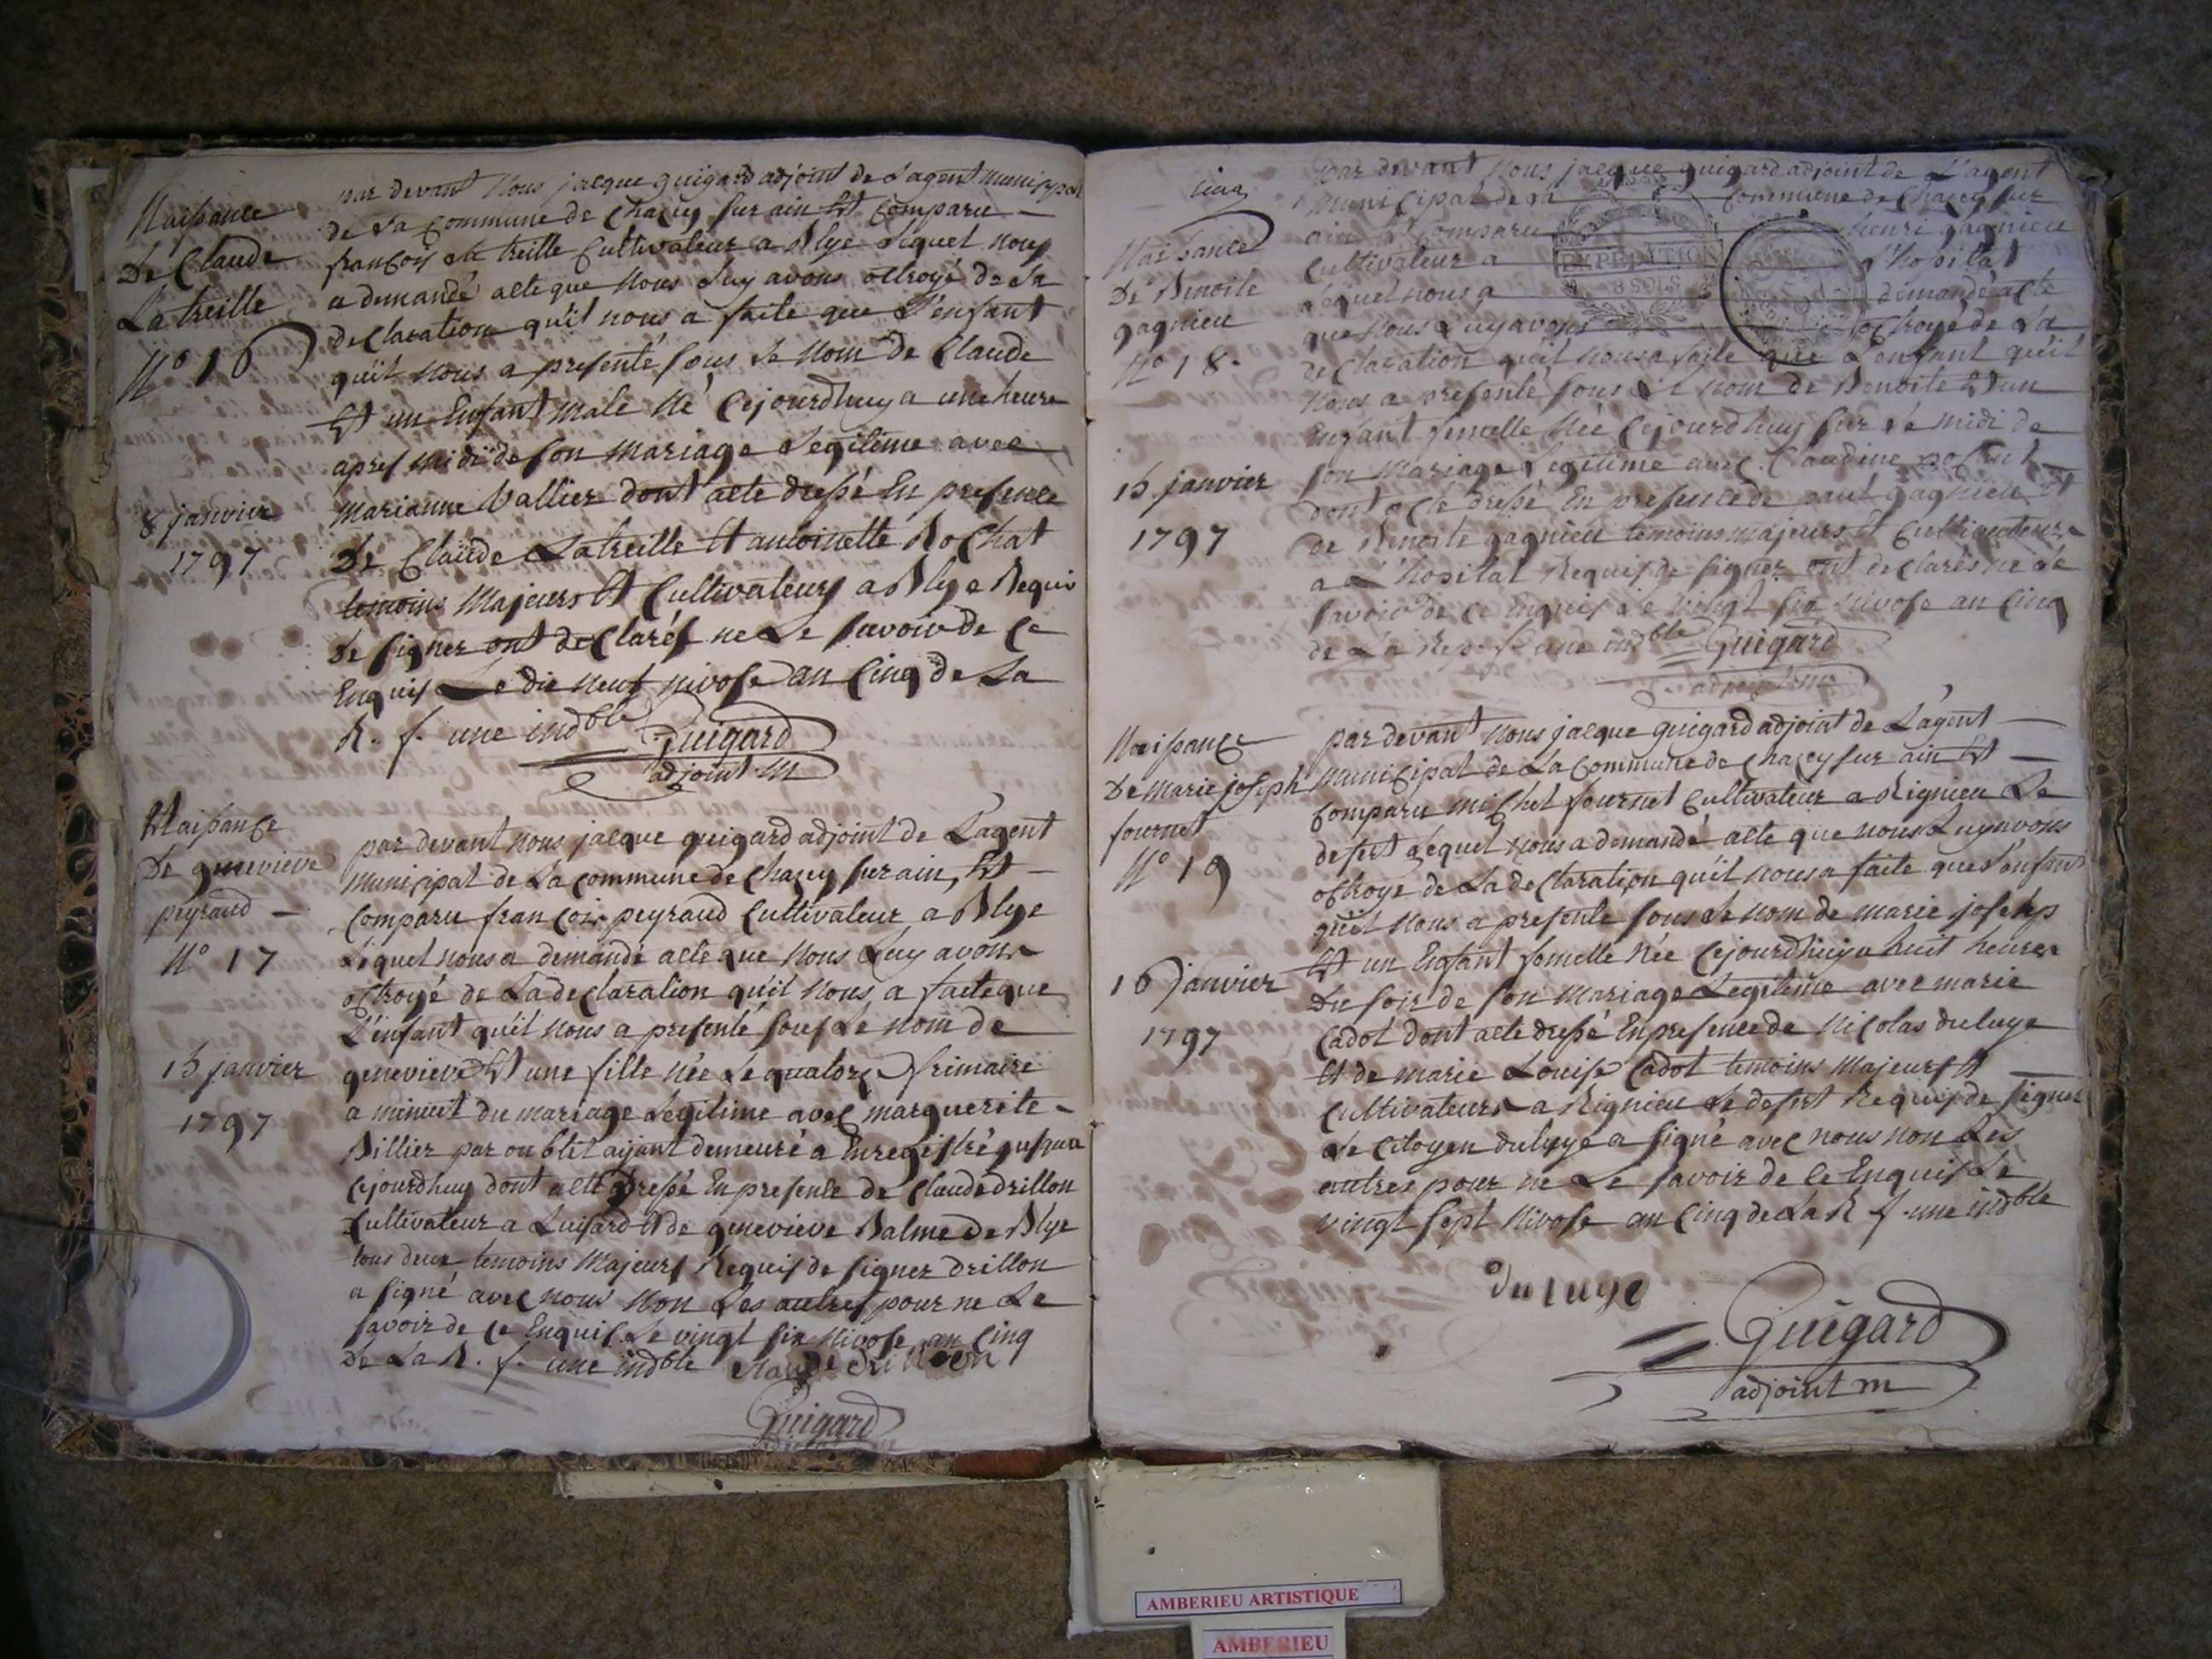 Naissance
De Claude
Latreille
N° 16
8 janvier
1797
par devant Nous jacque guigard adjoint de L'agent municipal
de La Commune de Chazey sur ain Est Comparu
françois La treille Cultivateur a Blye Lequel nous
a demandé acte que Nous Luy avons octroyé de La
declaration qu'il nous a faite que L'enfant
qu'il nous a presenté sous Le nom de Claude
Est un Enfant male Né Cejourdhuy a une heure
apres midi de son mariage Legitime avec
marianne Vallier dont acte dressé En presence
De Claude Latreille Et antoinette Rochat
temoins Majeurs Et Cultivateurs a Blye Requis
de signer ont declarés ne Le savoir de Ce
Enquis Le dix neuf nivose an Cinq de La
R. f. une indble Guigard
adjoint m
Naissance
De genevieve
peyraud
N° 17
15 janvier
1797
par devant nous jacque guigard adjoint de L'agent
municipal de La commune de Chazey sur ain, Est
Comparu françois peyraud Cultivateur a Blye
Lequel nous a demandé acte que Nous Luy avons
octroyé de La declaration qu'il Nous a faite que
L'enfant qu'il nous a presenté sous Le nom de
genevieve Est une fille Née Le quatorze frimaire
a minuit du mariage Legitime avec marguerite
Billier par oublit ayant demeuré a Enregistré jusqua
Cejourdhuy dont acte dressé En presence de Claude drillon
Cultivateur a Luisard Et de genevieve Balme de Blye
tous deux temoins Majeurs Requis de signer drillon
a signé avec nous Non Les autres pour ne Le
savoir de Ce Enquis Le vingt six Nivose an Cinq
De La R. f. une indble Claude drillon
Guigard
cinq
Naissance
De Benoite
gagnieu
N° 18
15 janvier
1797
par devant Nous jacque guigard adjoint de L'agent
municipal de La Commune de Chazey sur
ain Est Comparu henri gagnieu
Cultivateur a L'hopital
Lequel nous a demandé acte
que Nous Luy avons octroyé de La
declaration qu'il nous a faite que L'enfant qu'il
Nous a presenté sous Le nom de Benoite Est un
Enfant femelle Née Cejourdhuy sur Le midi de
son mariage Legitime avec Claudine
dont acte dressé En presence de paul gagnieu Et
de Benoite gagnieu temoins majeurs Et Cultivateurs
a L'hopital Requis de signer ont declarés ne Le
savoir de Ce Enquis Le vingt six nivose an Cinq
de La Rep. f. une indble Guigard
adjoint m
EXPEDITION
8 SOLS
Naissance
De Marie joseph
fournet
N° 19
16 janvier
1797
par devant nous jacque guigard adjoint de L'agent
municipal de La Commune de Chazey sur ain Est
Comparu michel fournet Cultivateur a Rignieu Le
desert Lequel nous a demandé acte que nous Luy avons
octroye de La declaration qu'il nous a faite que L'enfant
qu'il Nous a presenté sous Le nom de marie joseph
Est un Enfant femelle Née Cejourdhuy a huit heures
Du soir de son Mariage Legitime avec marie
Cadot dont acte dressé En presence de Nicolas duluye
Et de marie Louise Cadot temoins Majeurs Et
Cultivateurs a Rignieu Le desert Requis de signer
Le Citoyen duluye a signé avec nous non Les
autres pour ne Le savoir de Ce Enquis Le
vingt sept Nivose an Cinq de La R f. une indble
duluye
Guigard
adjoint m
AMBERIEU ARTISTIQUE
AMBERIEU